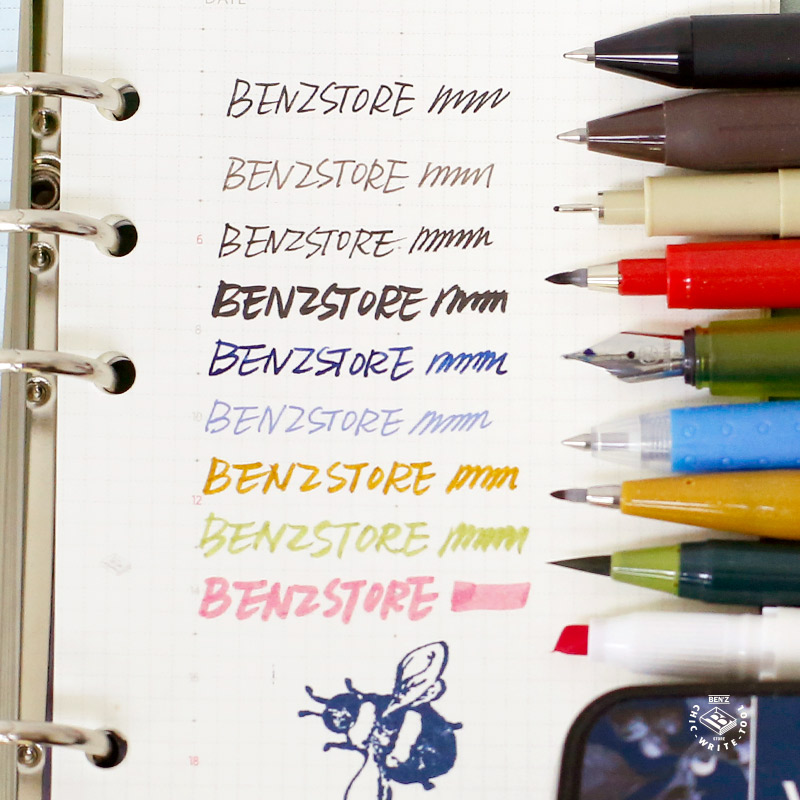 DATE
BENZSTORE
BENZSTORE
6
BENZSTORE
BENZSTORE
8
BENZSTORE
10
BENZSTORE
12
BENZSTORE
BENZSTORE
14
BENZSTORE
16
18
BEN'Z
CHIC-WRITE-TOO
B
STORE